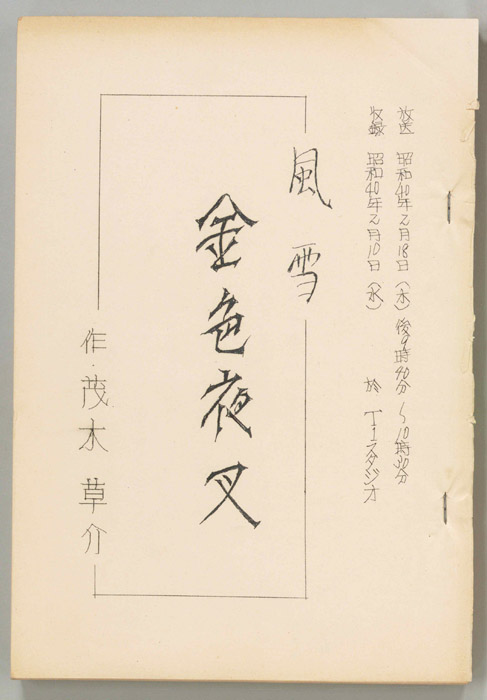 放送 昭和40年2月18日(木)後9時40分~10時30分
収録 昭和40年2月10日(水) 於 T-1スタジオ
風雪
金色夜叉
作・茂木草介